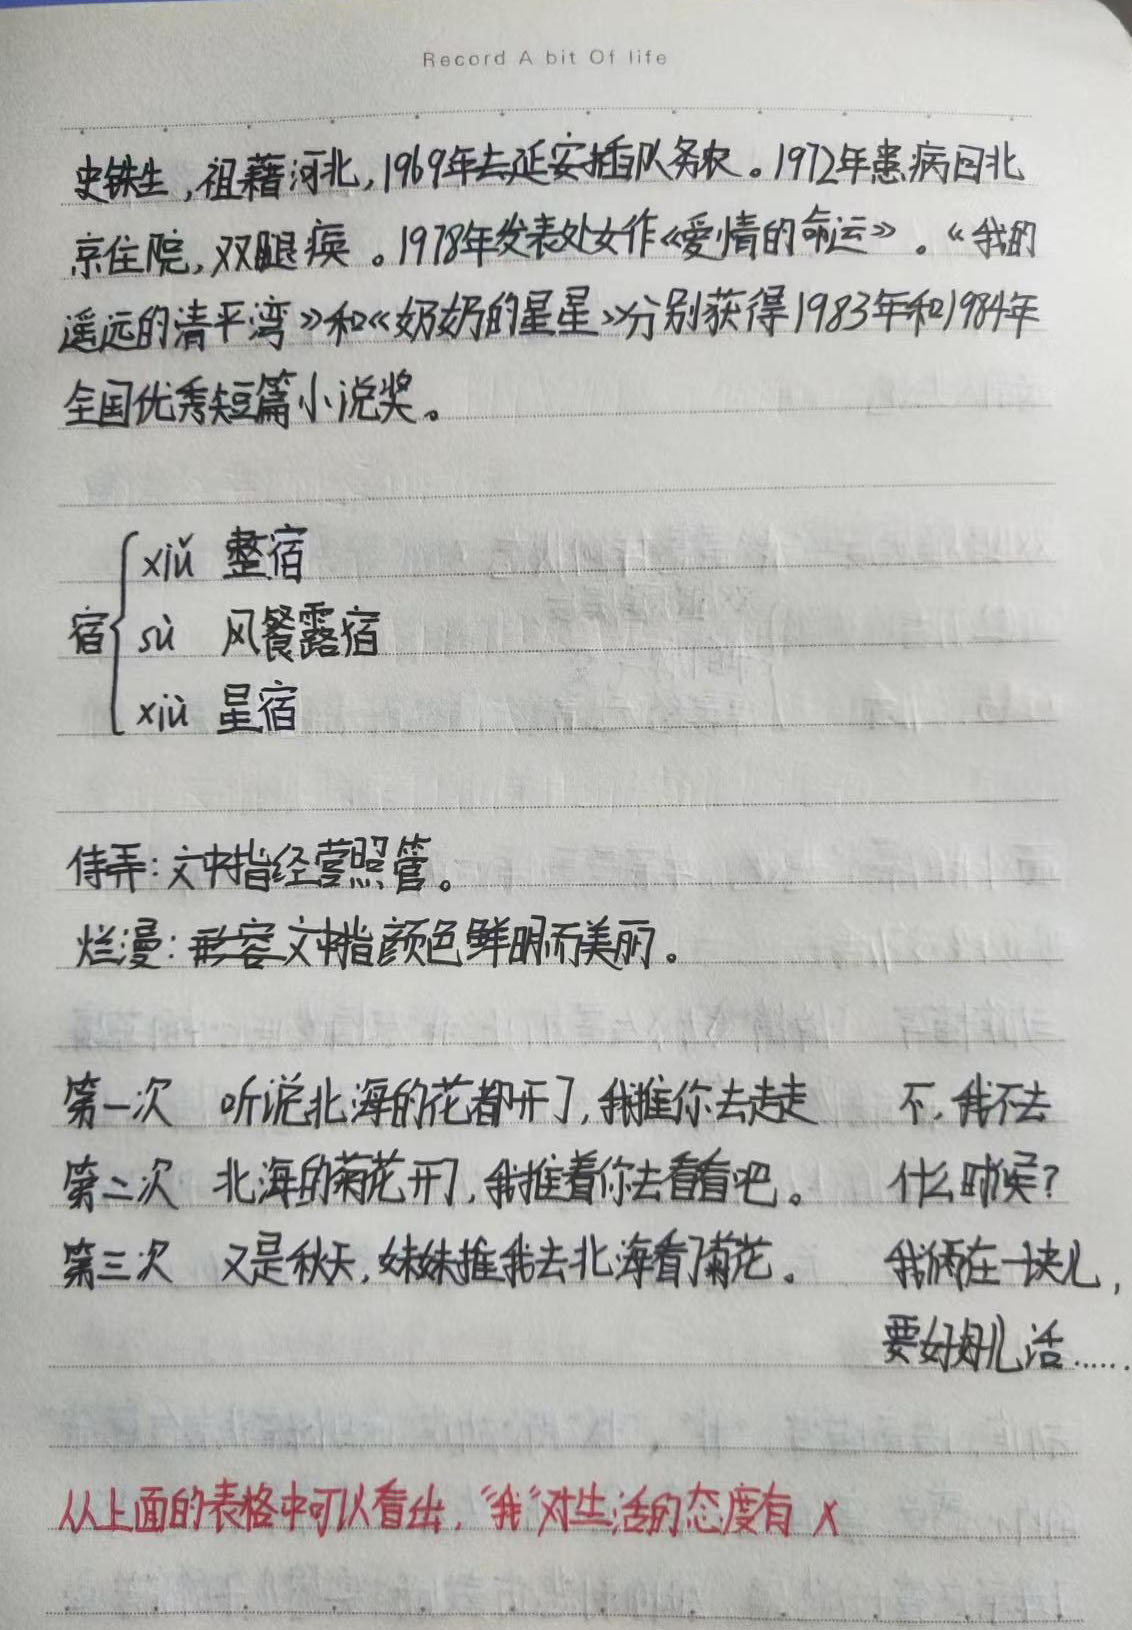 Record A bit Of life
史铁生,祖藉河北,1969年去延安插队务农。1972年患病回北
京住院,双腿瘓。1978年发表处女作《爱情的命运》。《我的
遥远的清平湾》和《奶奶的星星》分别获得1983年和1984年
全国优秀短篇小说奖。
宿
xiǔ 整宿
sù 风餐露宿
xiù 星宿
侍弄:文中指经营照管。
烂漫:形容文中指颜色鲜明而美丽。
第一次 听说北海的花都开了,我推你去走走 不,我不去
第二次 北海的菊花开了,我推着你去看看吧。 什么时候?
第三次 又是秋天,妹妹推我去北海看了菊花。 我俩在一块儿,
要好好儿活……
从上面的表格中可以看出,“我”对生活的态度有 x